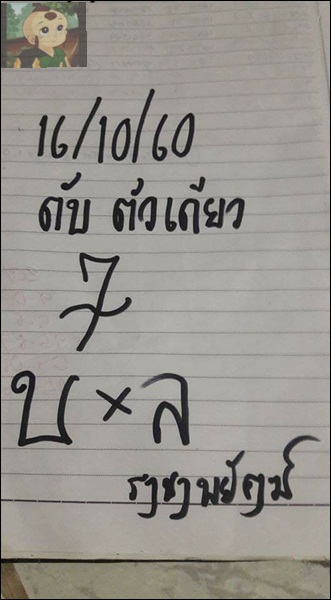 16/10/60
ดับ ตัวเดียว
7
บ × ล
ราชาพยัคฆ์